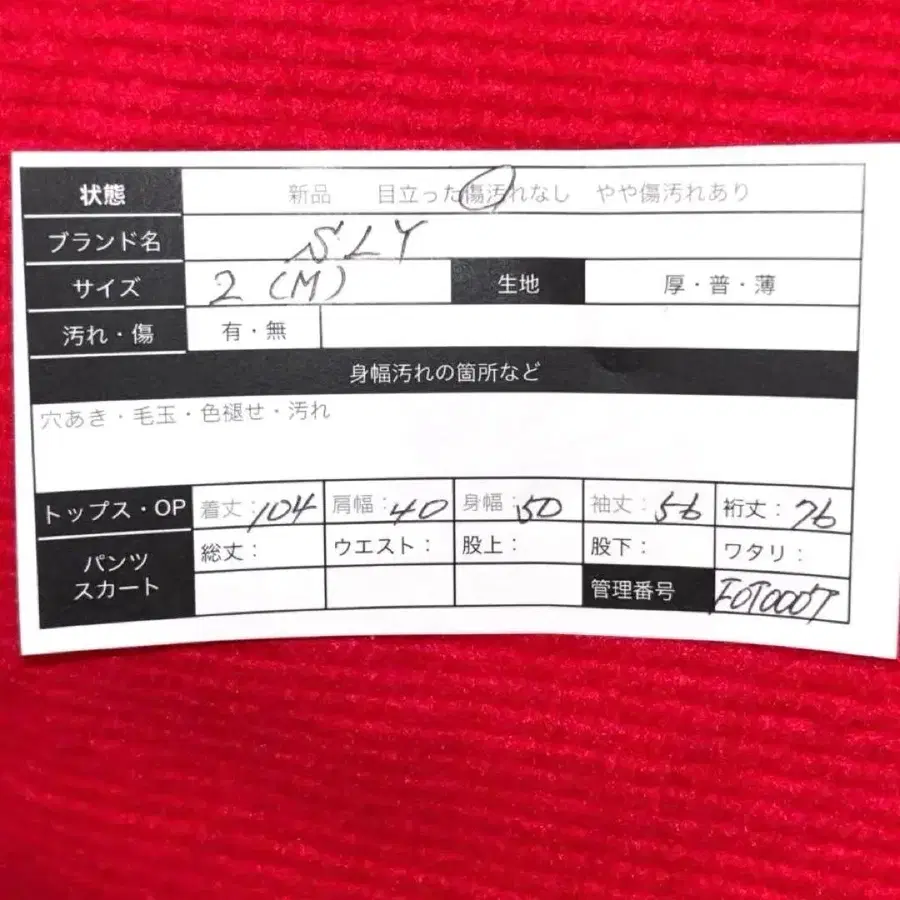 状態 新品 目立った傷汚れなし やや傷汚れあり
ブランド名 SLY
サイズ 2 (M) 生地 厚・普・薄
汚れ・傷 有・無
身幅汚れの箇所など
穴あき・毛玉・色褪せ・汚れ
トップス・OP 着丈:104 肩幅:40 身幅:50 袖丈:56 裄丈:76
パンツ 総丈: ウエスト: 股上: 股下: ワタリ:
スカート 管理番号